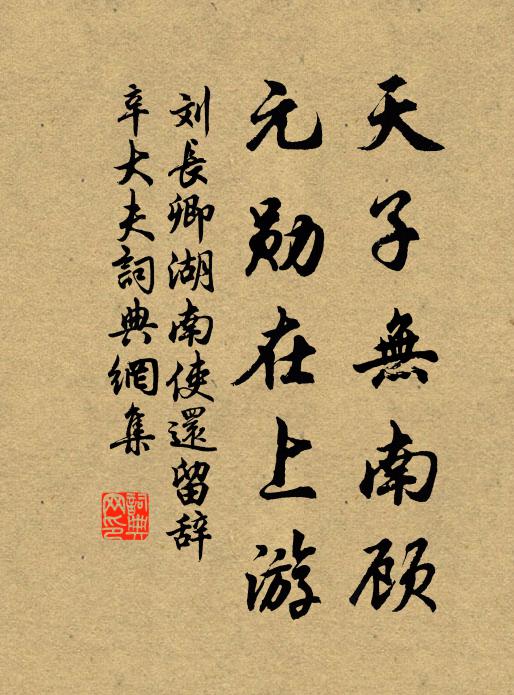 天子無南顾
元勋在上游
刘長卿湖南使還留辞
辛大夫詞典網集
詞典網印